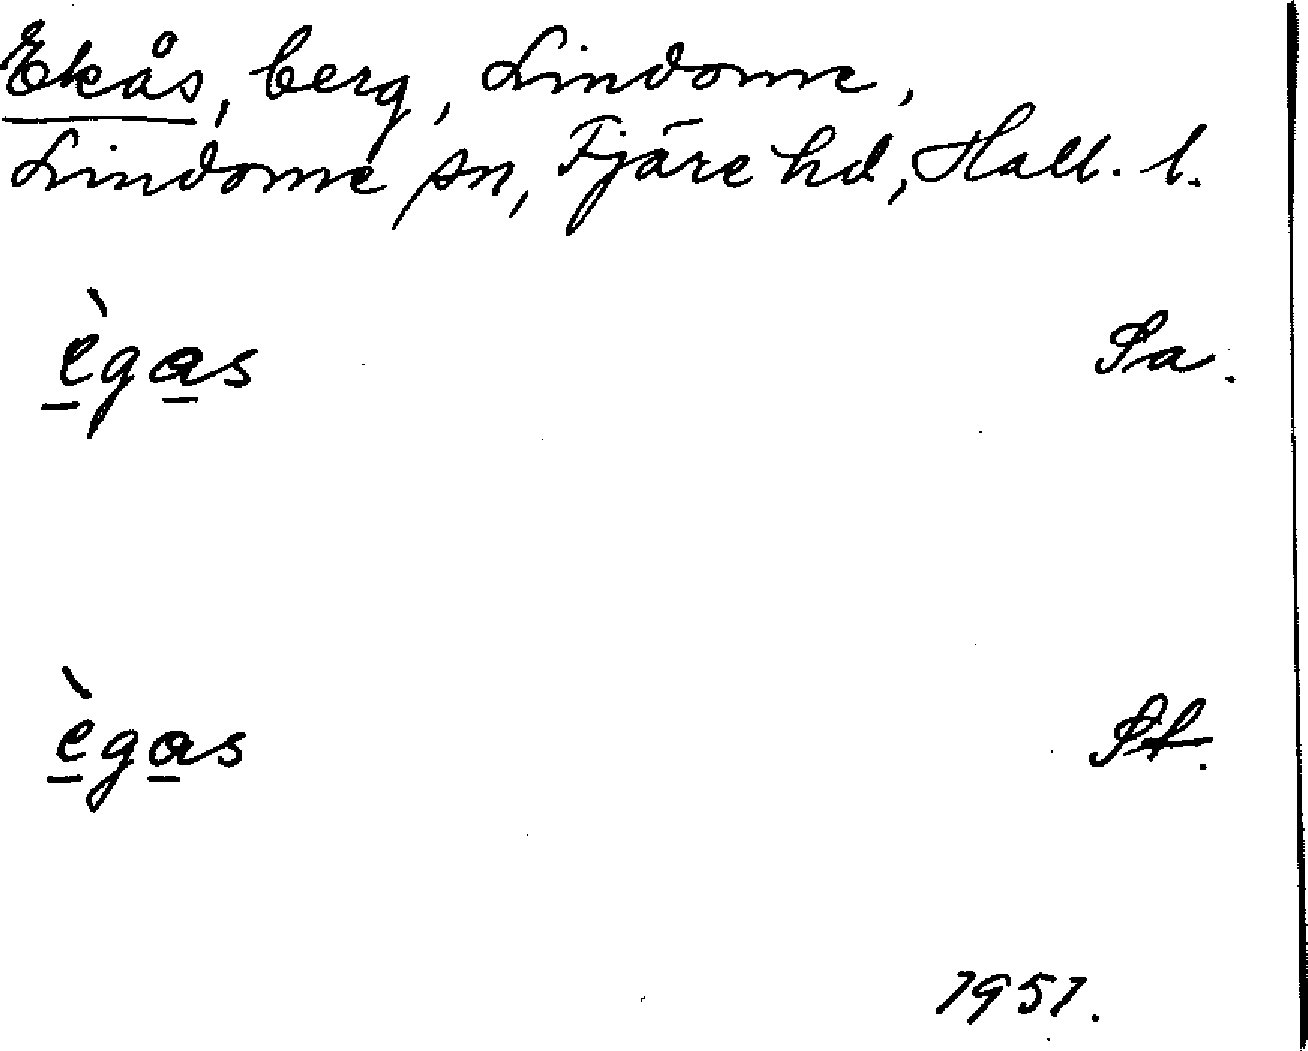 Ekås, berg, Lindome,
Lindome sn, Fjäre hd, Hall. l.
ègas Sa.
ègas St.
1951.